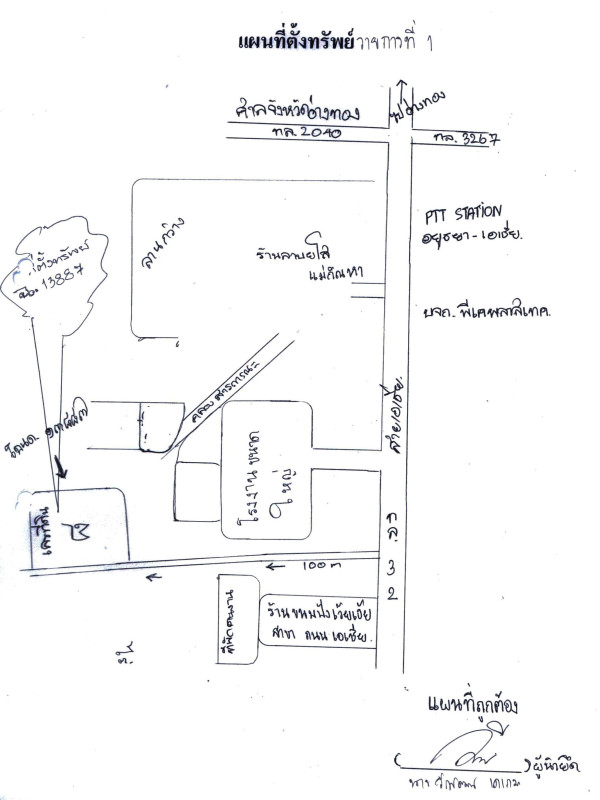 แผนที่ตั้งทรัพย์รายการที่ 1
ไปอ่างทอง
ศาลจังหวัดอ่างทอง
ทล. 2040
ทล. 3267
PTT STATION
อยุธยา - เอเชีย.
ลานกว้าง
ร้านลาบยโส
แม่กัณหา
ที่ตั้งทรัพย์
13887
บจก. พีเคพลาสเทค.
คลองสาธารณะ
สายเอเชีย
โฉนด
โรงงานขนาด
ใหญ่
เลขที่ดิน
ทล. 32
100 m
ที่พักคนงาน
ร้านขนมปังเว้ยเฮ้ย
สาขา ถนนเอเชีย.
แผนที่ถูกต้อง
( ) ผู้นำยึด